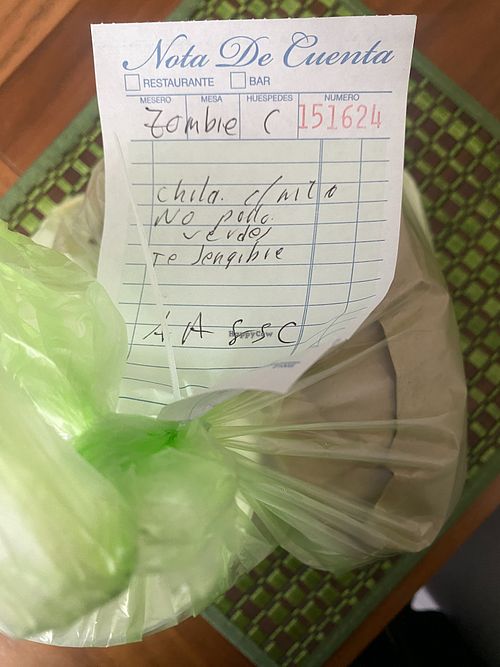 Nota De Cuenta
RESTAURANTE BAR
MESERO MESA HUESPEDES NUMERO
Zombie C 151624
chila. c/mixto
No pollo
verdes
Te sengibre
A
HappyCow